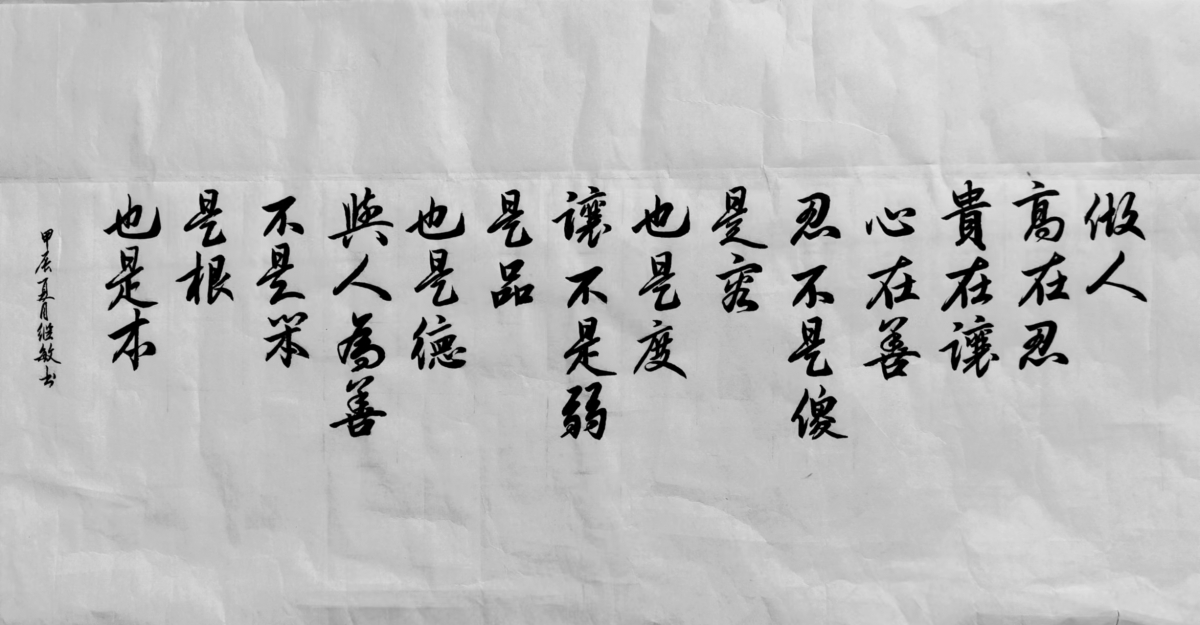 做人
高在忍
貴在讓
心在善
忍不是傻
是容
也是度
讓不是弱
是品
也是德
與人為善
不是笨
是根
也是本
甲辰夏月继敏书